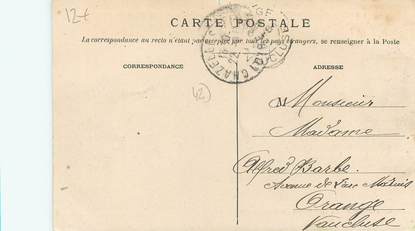 12+
CARTE POSTALE
La correspondance au recto n'étant pas acceptée par tous les pays étrangers, se renseigner à la Poste
CORRESPONDANCE
ADRESSE
CHAZELLES
LOIRE
42
Monsieur
Madame
Alfred Barbe
Avenue de l'arc
Orange
Vaucluse